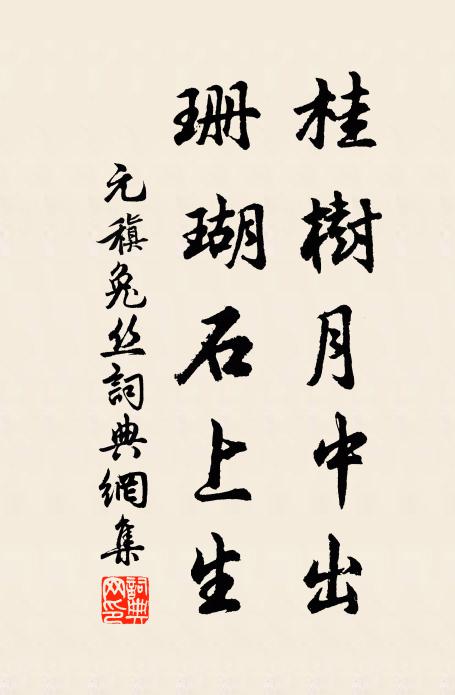 桂樹月中出
珊瑚石上生
元稹兔丝詞典網集
詞典网印